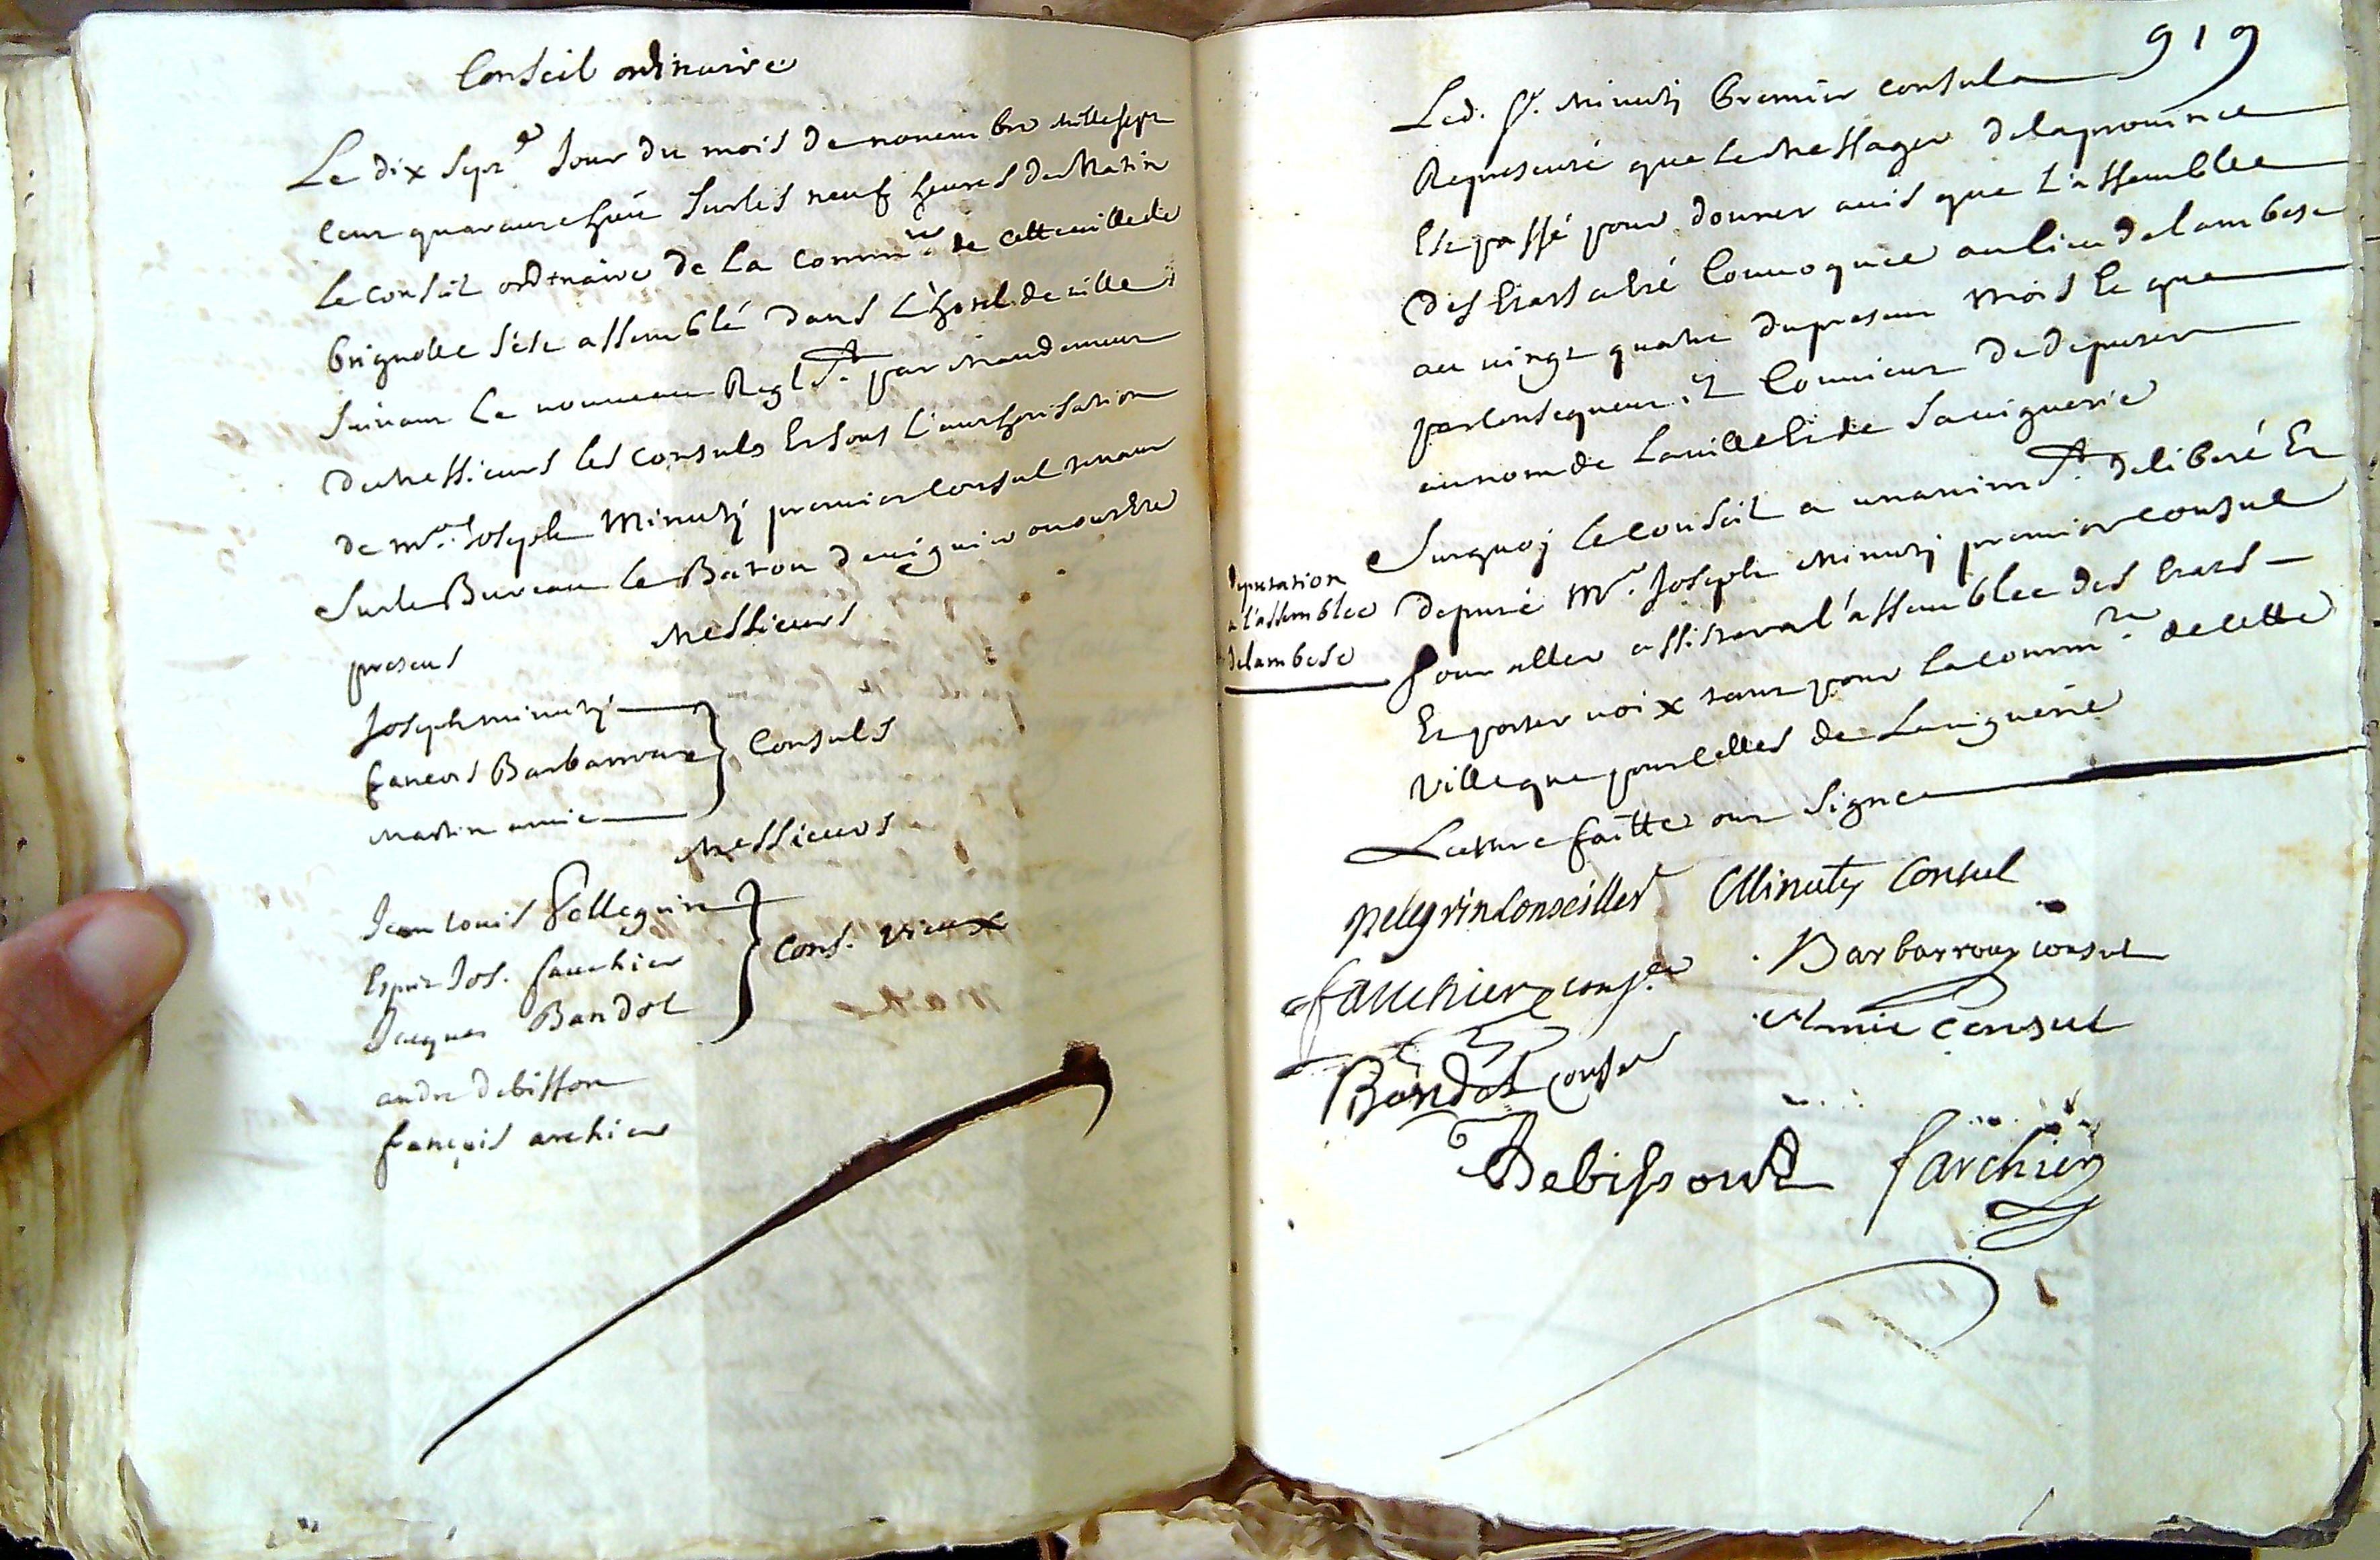 Conseil ordinaire
Le dix sept.e Jour du mois de novembre mille sept
cent quarante huit sur les neuf heures du Matin
le conseil ordinaire de la comm.té de cette ville de
brignolle s'est assemblé dans L'hotel de ville
suivant le nouveau Regl.t par mandement
de messieurs les consuls Et sous l'authorisation
de m.r Joseph Minuty premier consul tenant
sur le Bureau le Baton de viguier
Messieurs
presens
Joseph minuty
françois Barbarroux
Martin amic
Consuls
Messieurs
Jean Louis Pellegrin
Esprit Jos. fauchier
Jacques Bandol
Cons. vieux
andre debisson
françois archier
919
Led. Sr. Minuty Premier consul a
Representé que le messager de la province
Est passé pour donner avis que L'assemblée
des Etats a eté convoquée au lieu de lambesc
au vingt quatre du present mois Et que
par consequent il convient de deputer
au nom de la ville Et de sa viguerie
Surquoj le conseil a unanim.t deliberé Et
deputation
a l'assemblée
de lambesc
deputé Mr. Joseph Minuty premier consul
Pour aller assister a l'assemblée des Etats
Et porter voix tant pour la comm.té de cette
ville que pour celles de La viguerie
Lecture faitte ont signé
pelegrin conseiller Minuty Consul
fauchier cons.er Barbarroux consul
Bandol conser Amic consul
Debisson farchier